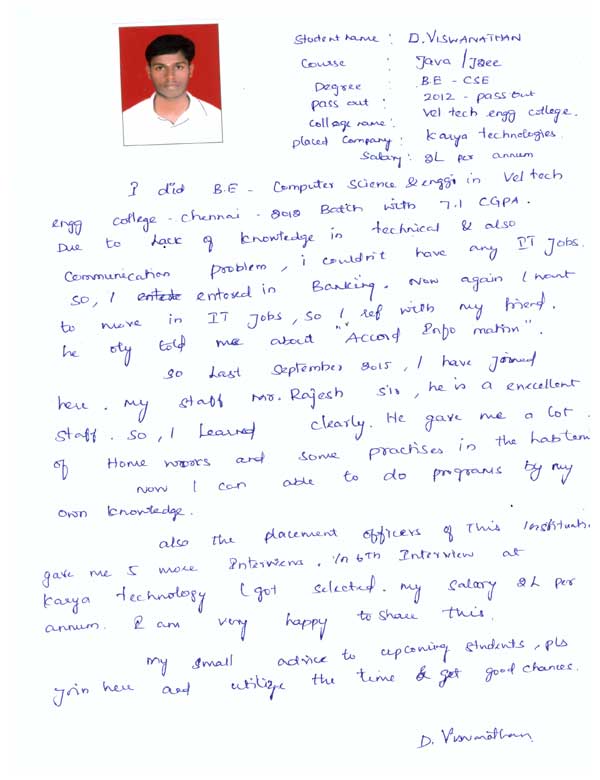 Student name : D. VISWANATHAN
Course : Java / J2ee
Degree : B.E - CSE
pass out : 2012 - pass out
College name : Vel tech engg college.
placed Company : Karya technologies.
Salary : 2L per annum
I did B.E - Computer Science & engg in Vel tech
engg college - Chennai - 2012 Batch with 7.1 CGPA.
Due to Lack of knowledge in technical & also
Communication problem, i couldn't have any IT Jobs.
So, I entered in Banking. Now again I want
to move in IT Jobs, so I ref with my friend.
he oly told me about "Accord Info mation".
So Last September 2015, I have joined
here. my staff Mr. Rajesh sir, he is a enecellent
staff. so, I Learned clearly. He gave me a lot
of Home works and some practises in the lab
now I can able to do programs by my
own knowledge.
also the placement officers of this Instituti
gave me 5 more Interviews. In 6th Interview at
Karya technology I got selected. my salary 2L per
annum. I am very happy to share this.
my small advice to upcoming students, pls
join here and utilize the time & get good chances.
D. Viswanathan